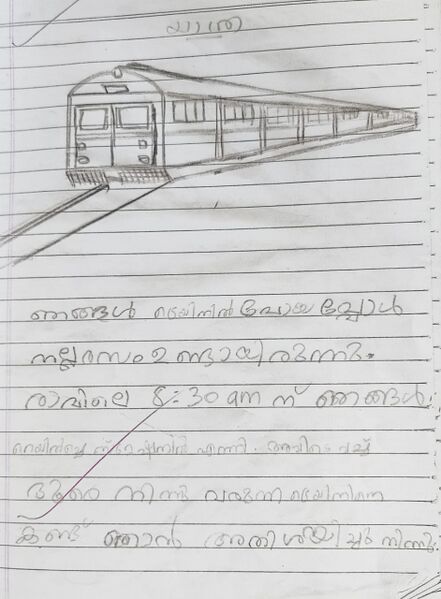 യാത്ര
ഞങ്ങൾ ട്രെയിനിൽ പോയപ്പോൾ
നല്ല രസം ഉണ്ടായിരുന്നു.
രാവിലെ 8:30 am ന് ഞങ്ങൾ
എത്തി. അവിടെ വച്ച്
ദൂരെ നിന്നു വരുന്ന ട്രെയിനിനെ
കണ്ട് ഞാൻ അതിശയിച്ചു നിന്നു.